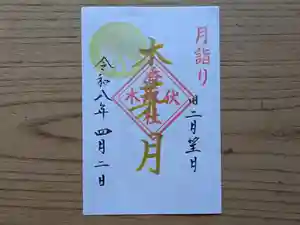 月詣り
旧二月望日
木
月
伏
木
社
令和八年 四月二日